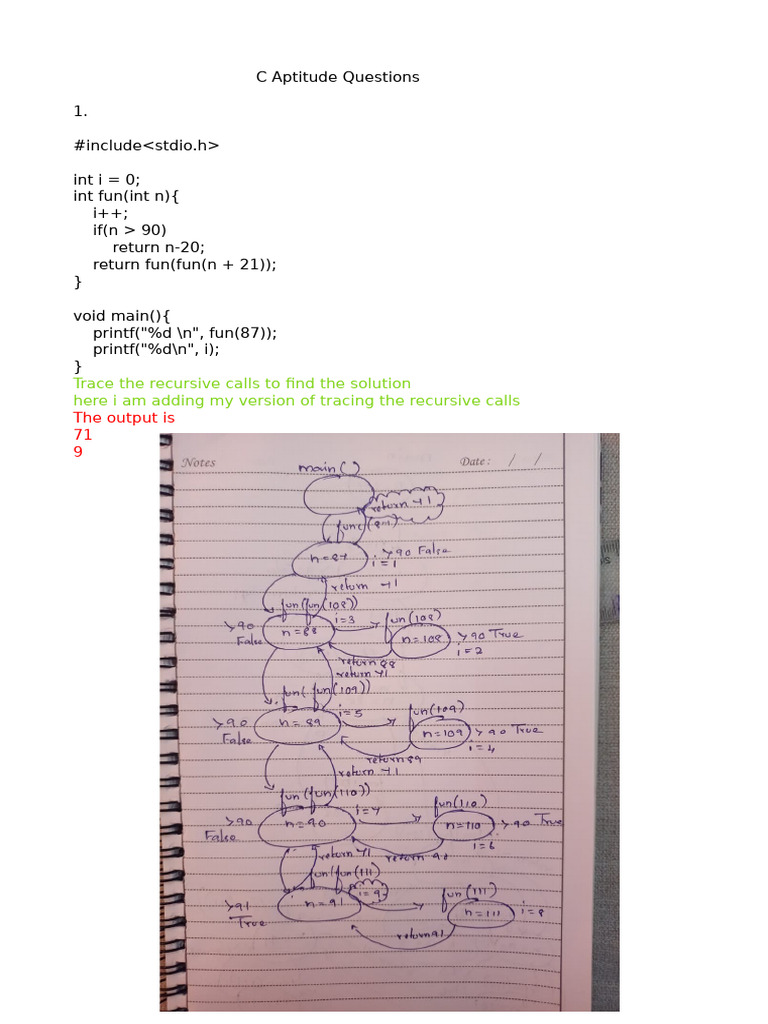 C Aptitude Questions
1.
#include<stdio.h>
int i = 0;
int fun(int n){
i++;
if(n > 90)
return n-20;
return fun(fun(n + 21));
}
void main(){
printf("%d \n", fun(87));
printf("%d\n", i);
}
Trace the recursive calls to find the solution
here i am adding my version of tracing the recursive calls
The output is
71
9
Notes
Date: / /
main()
return 71
func(87)
n=87
>90 False
i=1
return 71
fun(fun(108))
>90
False
n=88
i=3
fun(108)
n=108
>90 True
i=2
return 88
return 71
fun(fun(109))
>90
False
n=89
i=5
fun(109)
n=109
>90 True
i=4
return 89
return 71
fun(fun(110))
>90
False
n=90
i=7
fun(110)
n=110
>90 True
i=6
return 90
return 71
fun(fun(111)
>91
True
n=91
i=9
fun(111)
n=111
i=8
return 91